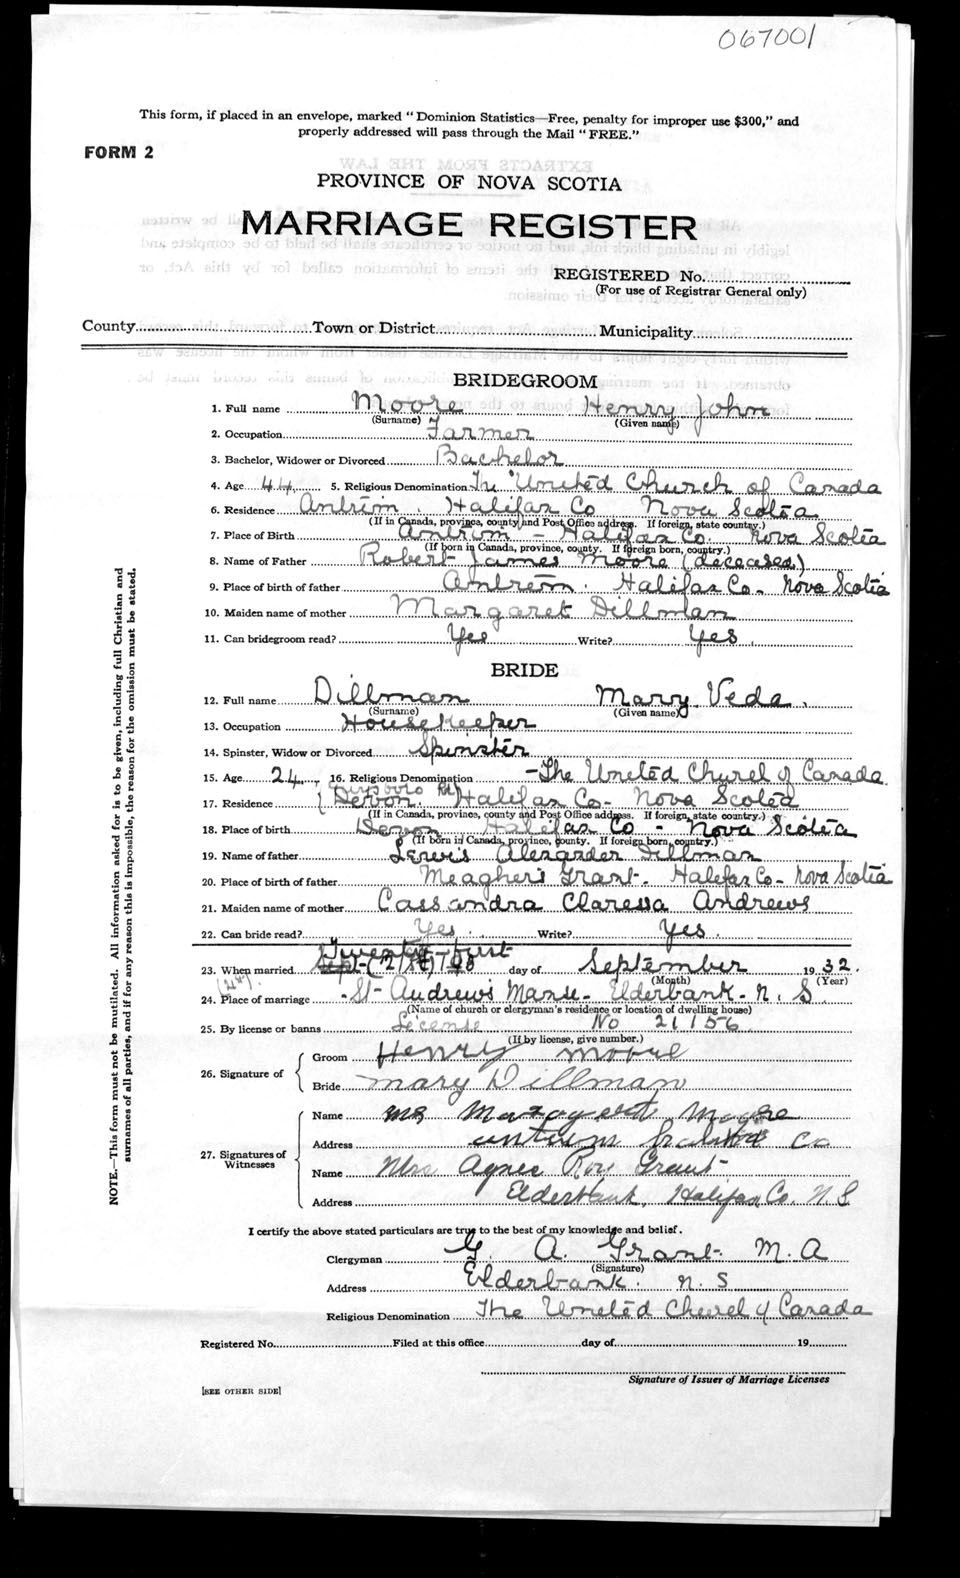 067001
This form, if placed in an envelope, marked "Dominion Statistics—Free, penalty for improper use $300," and
properly addressed will pass through the Mail "FREE."
FORM 2
PROVINCE OF NOVA SCOTIA
MARRIAGE REGISTER
REGISTERED No.
(For use of Registrar General only)
County Town or District Municipality
BRIDEGROOM
1. Full name Moore Henry John
(Surname) (Given name)
2. Occupation Farmer
3. Bachelor, Widower or Divorced Bachelor
4. Age 44 5. Religious Denomination The United Church of Canada
6. Residence Antrim. Halifax Co Nova Scotia
(If in Canada, province, county and Post Office address. If foreign, state country.)
7. Place of Birth Antrim - Halifax Co. Nova Scotia
(If born in Canada, province, county. If foreign born, country.)
8. Name of Father Robert James Moore (deceased)
9. Place of birth of father Antrim. Halifax Co - Nova Scotia
10. Maiden name of mother Margaret Dillman
11. Can bridegroom read? Yes Write? Yes.
BRIDE
12. Full name Dillman Mary Veda.
(Surname) (Given name)
13. Occupation Housekeeper
14. Spinster, Widow or Divorced Spinster
15. Age 24. 16. Religious Denomination - The United Church of Canada
Guysboro Rd
17. Residence Devon. Halifax Co - Nova Scotia
(If in Canada, province, county and Post Office address. If foreign, state country.)
18. Place of birth Devon Halifax Co - Nova Scotia
(If born in Canada, province, county. If foreign born, country.)
19. Name of father Lewis Alexander Dillman
20. Place of birth of father Meagher's Grant. Halifax Co - Nova Scotia
21. Maiden name of mother Cassandra Claressa Andrews
22. Can bride read? Yes. Write? Yes.
Twenty first
23. When married Sept - (21st) day of September 1932.
(Month) (Year)
24. Place of marriage - St Andrew's Manse - Elderbank - N. S
(Name of church or clergyman's residence or location of dwelling house)
25. By license or banns License No 21156
(If by license, give number.)
26. Signature of
Groom Henry Moore
Bride Mary Dillman
27. Signatures of Witnesses
Name Mrs Margaret Moore
Address Antrim Halifax Co
Name Mrs Agnes Roy Grant
Address Elderbank, Halifax Co. N. S.
I certify the above stated particulars are true to the best of my knowledge and belief.
Clergyman G. A. Grant M. A
(Signature)
Address Elderbank. N. S
Religious Denomination The United Church of Canada
Registered No. Filed at this office day of 19
Signature of Issuer of Marriage Licenses
[SEE OTHER SIDE]
NOTE.—This form must not be mutilated. All information asked for is to be given, including full Christian and
surnames of all parties, and if for any reason this is impossible, the reason for the omission must be stated.